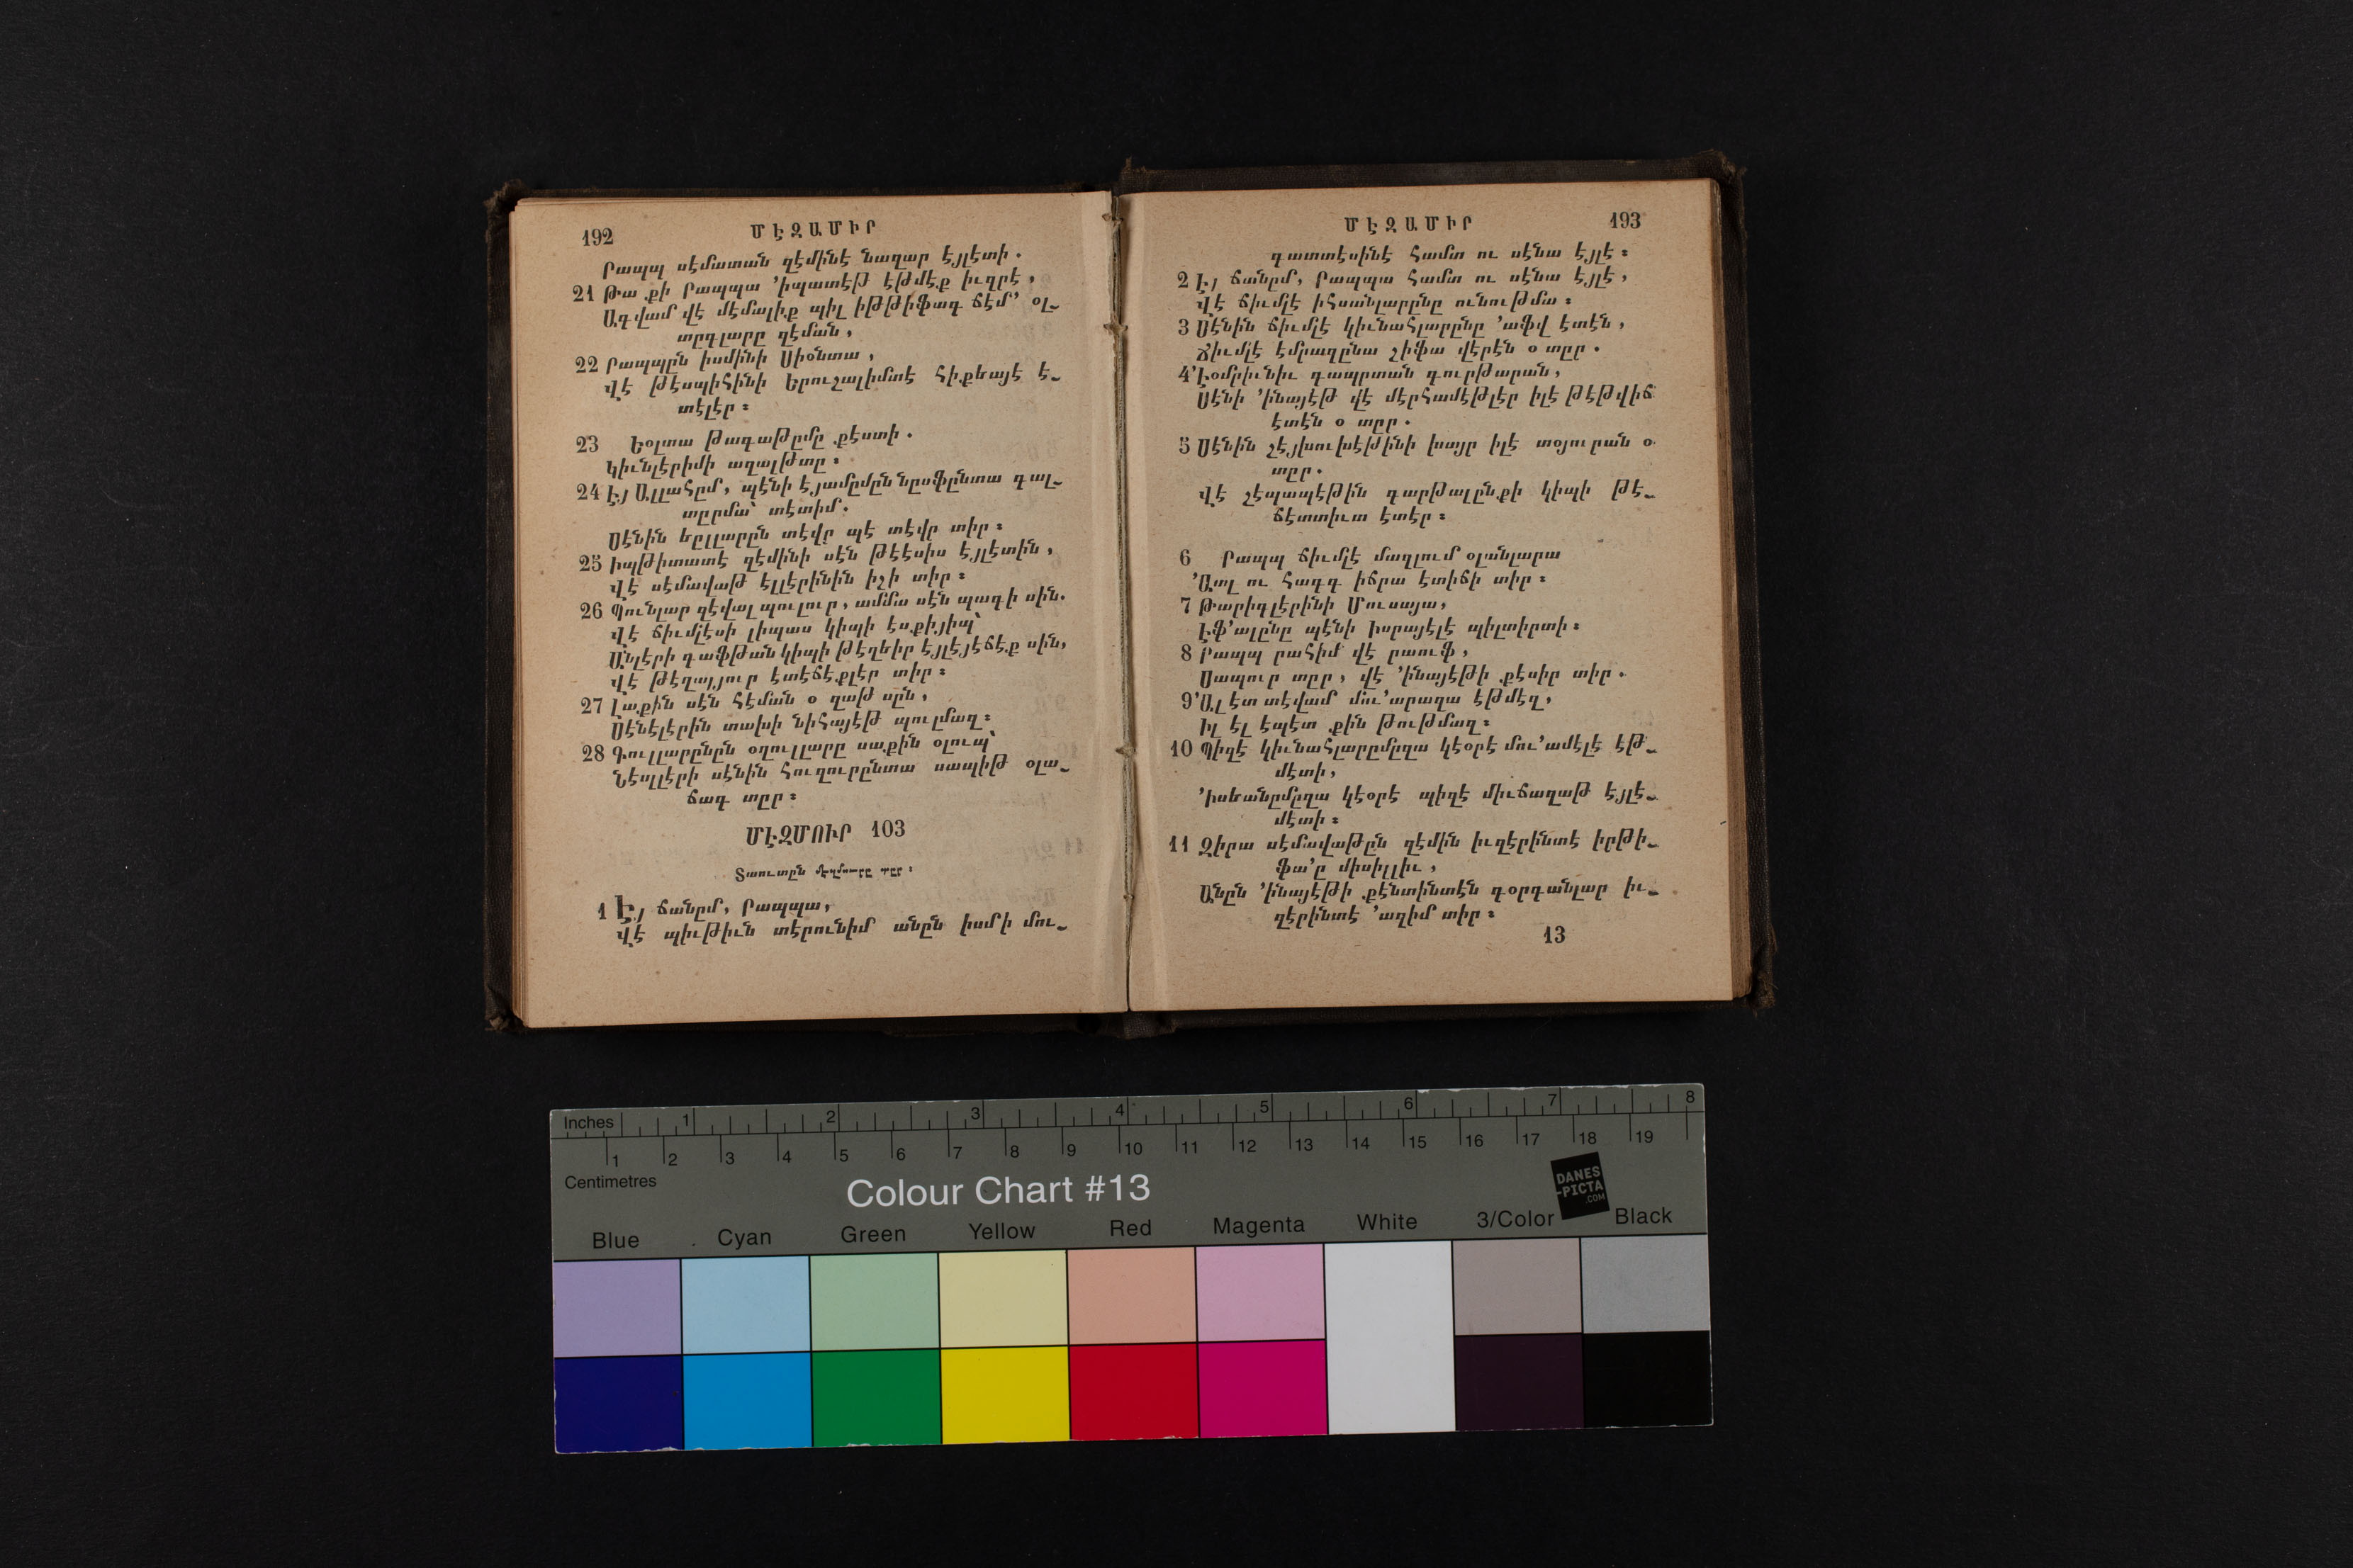 192 ՄԷԶԱՄԻՐ
Րապպ սէմատան զէմինէ նազար էյլէտի.
21 Թա քի Րապպա ՚իպատէթ էթմէք իւզրէ,
Ագվամ վէ մէմալիք պիլ իթթիֆագ ճէմ՚ օլ֊
տըգլարը զէման,
22 Րապպըն իսմինի Սիօնտա,
Վէ թէսպիհինի Երուշալիմտէ հիքեայէ է֊
տէլէր։
23 Եօլտա թագաթըմը քէստի.
Կիւնլէրիմի ազալթտը։
24 Էյ Ալլահըմ, պէնի էյամըմըն նըսֆընտա գալ֊
տըրմա՝ տէտիմ.
Սէնին եըլլարըն տէվր պէ տէվր տիր։
25 Իպթիտատէ զէմինի սէն թէէսիս էյլէտին,
Վէ սէմավաթ էլլէրինին իշի տիր։
26 Պունլար զէվալ պուլուր, ամմա սէն պագի սին.
Վէ ճիւմլէսի լիպաս կիպի էսքիյիպ՝
Անլէրի գաֆթան կիպի թէղեիր էյլէյէճէք սին,
Վէ թէղայյուր էտէճէքլէր տիր։
27 Լաքին սէն հէման օ զաթ սըն,
Սէնէլէրին տախի նիհայէթ պուլմազ։
28 Գուլլարընըն օղուլլարը սաքին օլուպ՝
Նէսլլէրի սէնին հուզուրընտա սապիթ օլա֊
ճագ տըր։
ՄԷԶՄՈՒՐ 103
Տաուտըն մէզմուրը տըր։
1 Էյ ճանըմ, Րապպա,
Վէ պիւթիւն տէրունիմ անըն իսմի մու֊
ՄԷԶԱՄԻՐ 193
գատտէսինէ համտ ու սէնա էյլէ։
2 Էյ ճանըմ, Րապպա համտ ու սէնա էյլէ,
Վէ ճիւմլէ իհսանլարընը ունութմա։
3 Սէնին ճիւմլէ կիւնահլարընը ՚աֆվ էտէն,
Ճիւմլէ էմրազընա շիֆա վէրէն օ տըր.
4 ՚Էօմրիւնիւ գապրտան գուրթարան,
Սէնի ՚ինայէթ վէ մէրհամէթլէր իլէ թէթվիճ
էտէն օ տըր.
5 Սէնին շէյխուխէթինի խայր իլէ տօյուրան օ
տըր.
Վէ շէպապէթին գարթալընքի կիպի թէ֊
ճէտտիւտ էտէր։
6 Րապպ ճիւմլէ մազլում օլանլարա
՚Ատլ ու հագգ իճրա էտիճի տիր։
7 Թարիգլէրինի Մուսայա,
Էֆ՚ալընը պէնի Իսրայէլէ պիլտիրտի։
8 Րապպ րահիմ վէ րաուֆ,
Սապուր տըր, վէ ՚ինայէթի քէսիր տիր.
9 ՚Ալ էտ տէվամ մու՚արազա էթմէզ,
Իլ էլ էպէտ քին թութմազ։
10 Պիզէ կիւնահլարըմըզա կէօրէ մու՚ամէլէ էթ֊
մէտի,
՚Իսեանըմըզա կէօրէ պիզէ միւճազաթ էյլէ֊
մէտի։
11 Զիրա սէմավաթըն զէմին իւզէրինտէ իրթի֊
ֆա՚ը միսիլլիւ,
Անըն ՚ինայէթի քէնտինտէն գօրգանլար իւ֊
զէրինտէ ՚ազիմ տիր։
13
Inches 1 2 3 4 5 6 7 8
1 2 3 4 5 6 7 8 9 10 11 12 13 14 15 16 17 18 19
Centimetres
Colour Chart #13
DANES
-PICTA
.COM
Blue Cyan Green Yellow Red Magenta White 3/Color Black